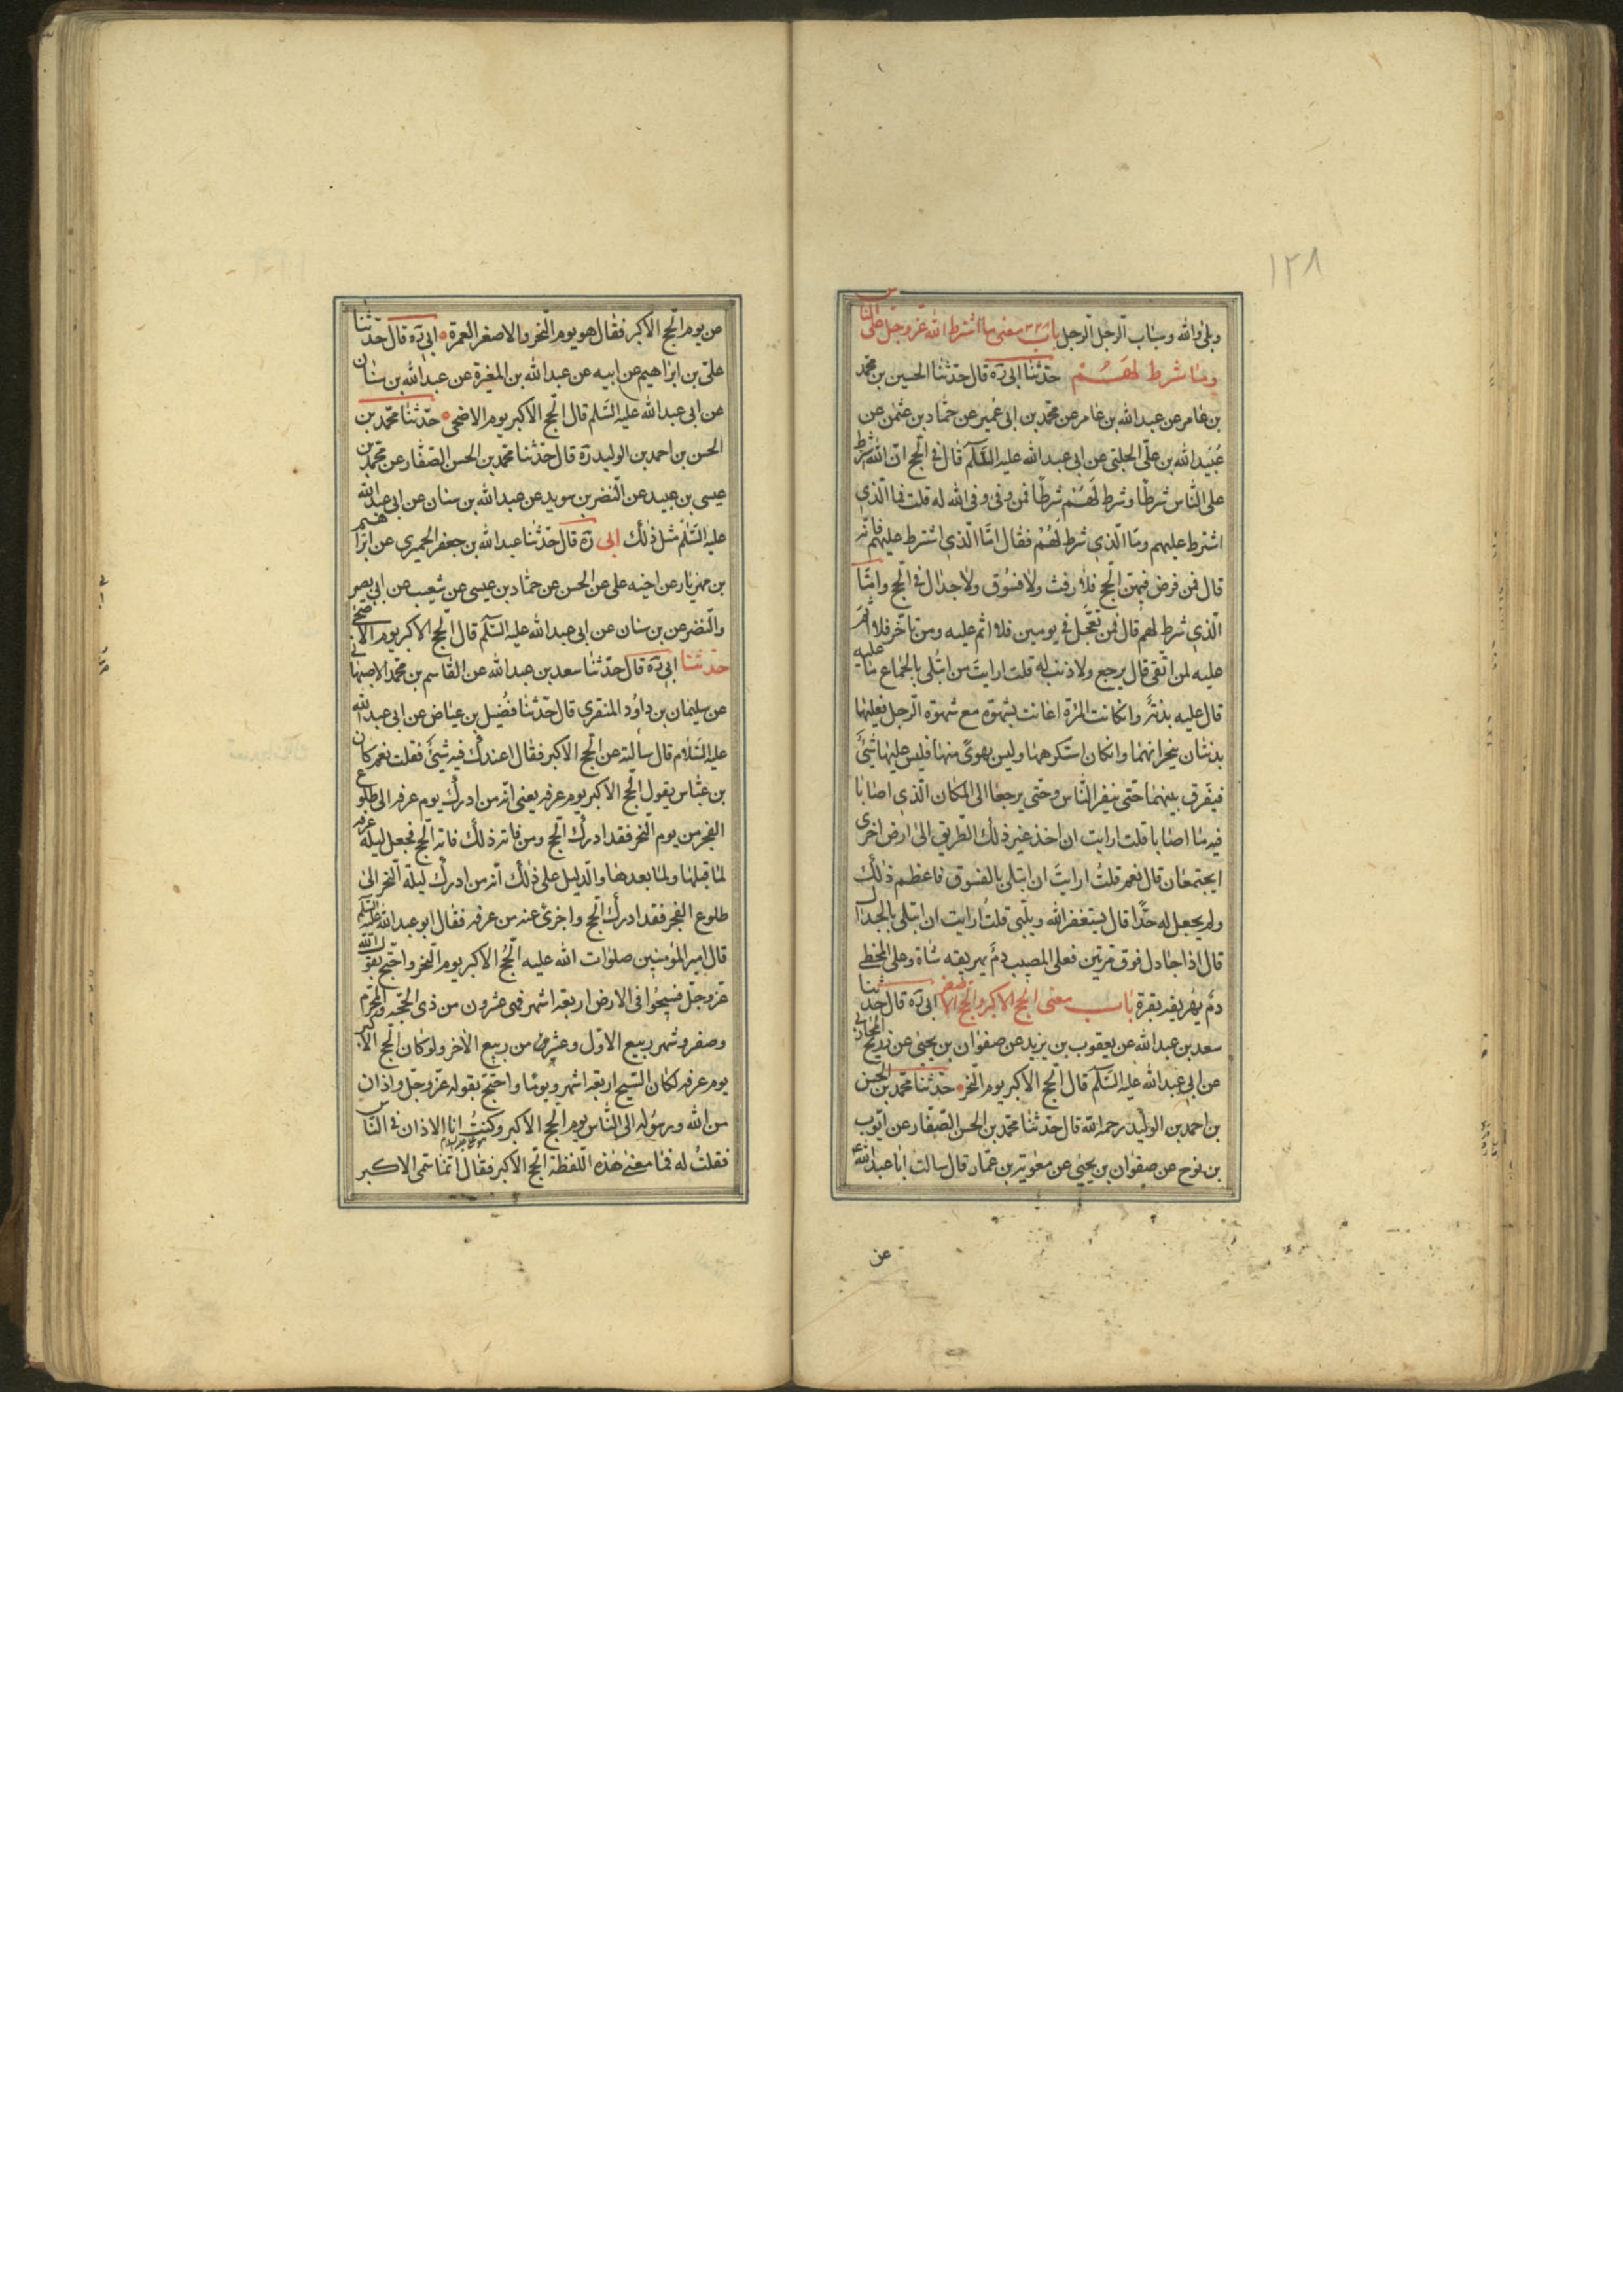 ١٢٨
وبلى والله وسباب الرجل الرجل باب ٢٢٨ معنى ما اشترط الله عزوجل على الناس
وما شرط لهم حدثنا ابى ره قال حدثنا الحسين بن محمد
بن عامر عن عبدالله بن عامر عن محمد بن ابى عمير عن حماد بن عثمن عن
عبيدالله بن على الحلبى عن ابى عبدالله عليه السلم قال فى الحج ان الله شرط
على الناس شرطا وشرط لهم شرطا فمن وفى وفى الله له قلت فما الذى
اشترط عليهم وما الذى شرط لهم فقال اما الذى اشترط عليهم فانه
قال فمن فرض فيهن الحج فلا رفث ولا فسوق ولا جدال فى الحج واما
الذى شرط لهم قال فمن تعجل فى يومين فلا اثم عليه ومن تاخر فلا اثم
عليه لمن اتقى قال يرجع ولا ذنب له قلت ارايت من ابتلى بالجماع ما عليه
قال عليه بدنة وانكانت المرة اعانت بشهوة مع شهوة الرجل فعليهما
بدنتان ينحرانهما وانكان استكرهها وليس بهوى منها فليس عليها شئ
فيفرق بينهما حتى ينفر الناس وحتى يرجعا الى المكان الذى اصابا
فيه ما اصابا قلت ارايت ان اخذ غير ذلك الطريق الى ارض اخرى
ايجتمعان قال نعم قلت ارايت ان ابتلى بالفسوق فاعظم ذلك
ولم يجعل له حدا قال يستغفرالله ويلبى قلت ارايت ان ابتلى بالجدال
قال اذا جادل فوق مرتين فعلى المصيب دم يهريقه شاة وعلى المخطى
دم يهريقه بقرة باب معنى الحج الاكبر والحج الاصغر ابى ره قال حدثنا
سعد بن عبدالله عن يعقوب بن يزيد عن صفوان بن يحيى عن ذريح المحاربى
عن ابى عبدالله عليه السلم قال الحج الاكبر يوم النحر حدثنا محمد بن الحسن
بن احمد بن الوليد رحمه الله قال حدثنا محمد بن الحسن الصفار عن ايوب
بن نوح عن صفوان بن يحيى عن معوية بن عمار قال سالت ابا عبدالله ع
عن
عن يوم الحج الاكبر فقال هو يوم النحر والاصغر العمرة ابى ره قال حدثنا
على بن ابراهيم عن ابيه عن عبدالله بن المغيرة عن عبدالله بن سنان
عن ابى عبدالله عليه السلم قال الحج الاكبر يوم الاضحى حدثنا محمد بن
الحسن بن احمد بن الوليد ره قال حدثنا محمد بن الحسن الصفار عن محمد بن
عيسى بن عبيد عن النضر بن سويد عن عبدالله بن سنان عن ابى عبدالله
عليه السلم مثل ذلك ابى ره قال حدثنا عبدالله بن جعفر الحميرى عن ابراهيم
بن مهزيار عن اخيه على عن الحسن عن حماد بن عيسى عن شعيب عن ابى بصير
والنضر عن بن سنان عن ابى عبدالله عليه السلم قال الحج الاكبر يوم الاضحى
حدثنا ابى ره قال حدثنا سعد بن عبدالله عن القاسم بن محمد الاصبهانى
عن سليمان بن داود المنقرى قال حدثنا فضيل بن عياض عن ابى عبدالله
عليه السلام قال سالته عن الحج الاكبر فقال اعندك فيه شئ فقلت نعم كان
بن عباس يقول الحج الاكبر يوم عرفه يعنى انه من ادرك يوم عرفه الى طلوع
الفجر من يوم النحر فقد ادرك الحج ومن فاته ذلك فاته الحج فجعل ليلة عرفه
لما قبلها ولما بعدها والدليل على ذلك انه من ادرك ليلة النحر الى
طلوع الفجر فقد ادرك الحج واجزى عنه من عرفه فقال ابو عبدالله عليه السلم
قال امير المؤمنين صلوات الله عليه الحج الاكبر يوم النحر واحتج بقول الله
عزوجل فسيحوا فى الارض اربعة اشهر فهى عشرون من ذى الحجه والمحرم
وصفر وشهر ربيع الاول وعشر من ربيع الاخر ولو كان الحج الاكبر
يوم عرفه لكان السيح اربعة اشهر ويوما واحتج بقوله عزوجل واذان
من الله ورسوله الى الناس يوم الحج الاكبر وكنت انا الاذان فى الناس
فقلت له فما معنى هذه اللفظة الحج الاكبر فقال انما سمى الاكبر